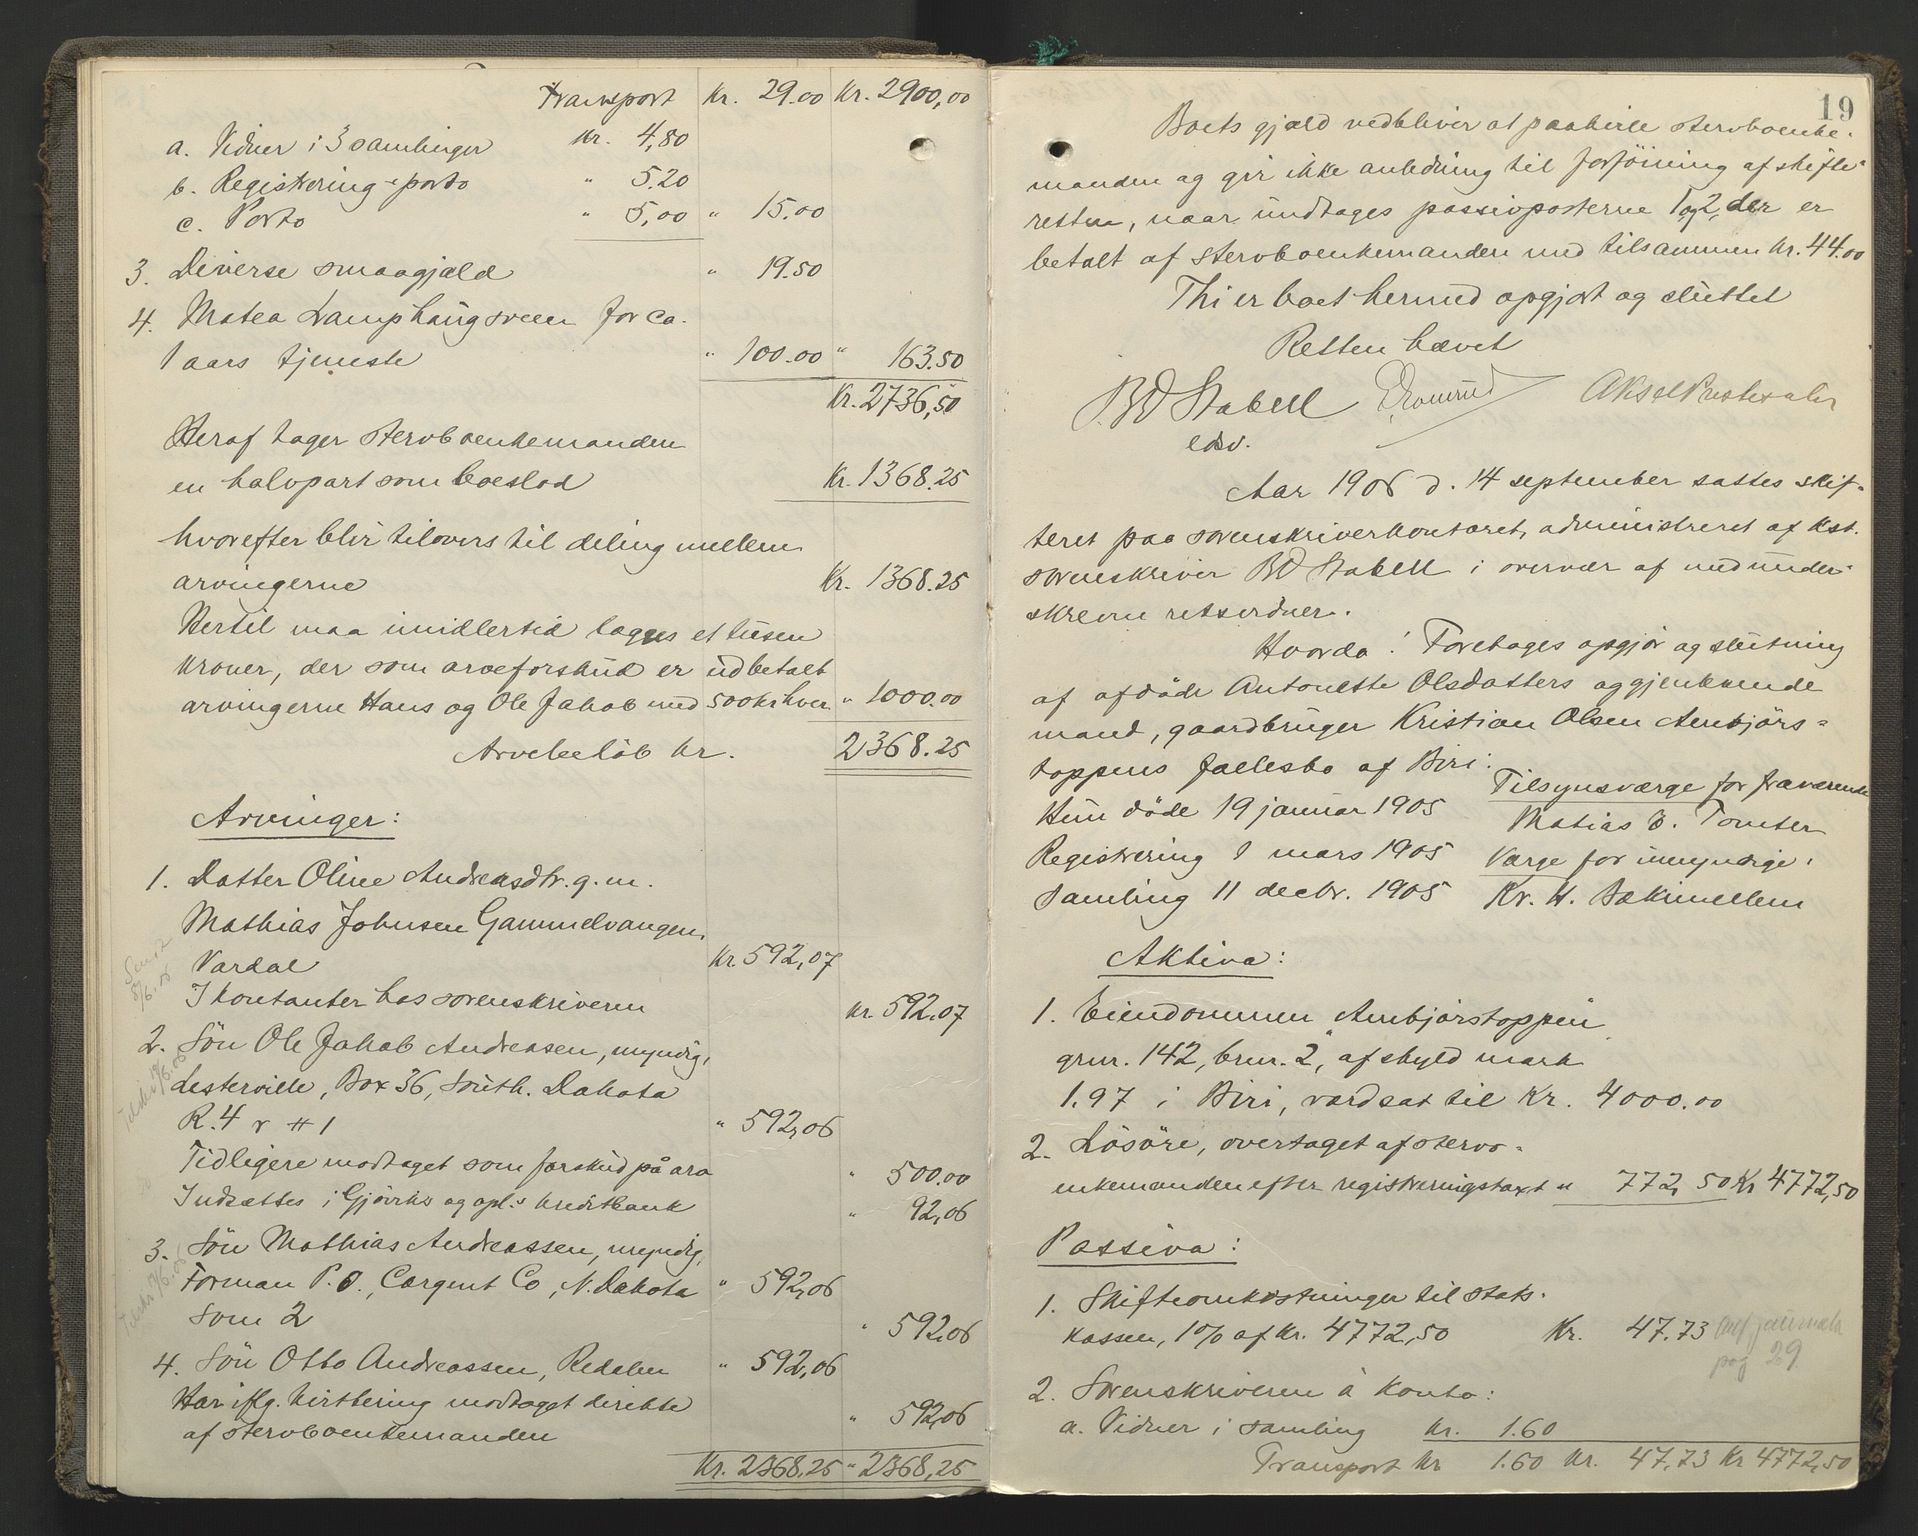 Transport Kr. 29.00 Kr. 2900,00
a. Vidner i 3 samlinger Kr. 4,80
b. Registrering - porto " 5.20
c. Porto " 5,00 " 15.00
3. Diverse smaagjæld " 19.50
4. Matea Lamphaugsveen for ca.
1 aars tjeneste " 100.00 " 163.50
Kr. 2736,50
Heraf tager stervboenkemanden
en halvpart som boeslod Kr. 1368.25
hvorefter blir tilovers til deling mellem
arvingerne Kr. 1368.25
Hertil maa imidlertid lægges et tusen
kroner, der som arveforskud er udbetalt
arvingerne Hans og Ole Jakob med 500 kr hver " 1000.00
Arvebeløb kr. 2368.25
Arvinger:
1. Datter Oline Andreasdtr. g. m.
Mathias Johnsen Gammelvangen,
Vardal Kr. 592,07
I kontanter hos sorenskriveren Kr. 592.07
2. Søn Ole Jakob Andreasen, myndig,
Lesterville, Box 36, South. Dakota
R. 4 r # 1 " 592,06
Tidligere modtaget som forskud på arv " 500.00
Indsættes i Gjøviks og opl.s kreditbank " 92,06
3. Søn Mathias Andreassen, myndig,
Forman P.O., Cargent Co, N. Dakota " 592,06
som 2 " 592,06
4. Søn Otto Andreassen, Redalen " 592,06
Har iflg. kvittering modtaget direkte
af stervboenkemanden " 592,06
Kr. 2368,25 " 2368,25
19
Boets gjæld vedbliver at paahvile stervboenke-
manden og gir ikke anledning til forføining af skifte-
retten, naar undtages passivposterne 1 og 2, der er
betalt af stervboenkemanden med tilsammen kr. 44.00
Thi er boet hermed opgjort og sluttet
Retten hævet
BD Stabell Aksel Prestesæter
edsv.
Aar 1906 d. 14 september sattes skif-
teret paa sorenskriverkontoret, administreret af kst.
sorenskriver BD Stabell i overvær af medunder-
skrevne retsvidner.
Hvorda! Foretages opgjør og slutning
af afdøde Antonette Olsdatters og gjenlevende
mand, gaardbruger Kristian Olsen Arnbjørs-
toppens fællesbo af Biri.
Hun døde 19 januar 1905 Tilsynsværge for fraværende
Registrering 1 mars 1905 Matias E. Tomter
samling 11 decbr. 1905 Værge for umyndige:
Kr. H. Bækimellem
Aktiva:
1. Eiendommen Arnbjørstoppen
grnr. 142, brnr. 2, af skyld mark
1.97 i Biri, værdsat til Kr. 4000.00
2. Løsøre, overtaget af stervbo-
enkemanden efter registreringstaxt " 772,50 Kr 4772,50
Passiva:
1. Skifteomkostninger til stats-
kassen, 1% af kr. 4772,50 Kr. 47.73
pag 29
2. Sorenskriveren à konto:
a. Vidner i samling kr. 1.60
Transport kr 1.60 kr. 47,73 Kr 4772,50